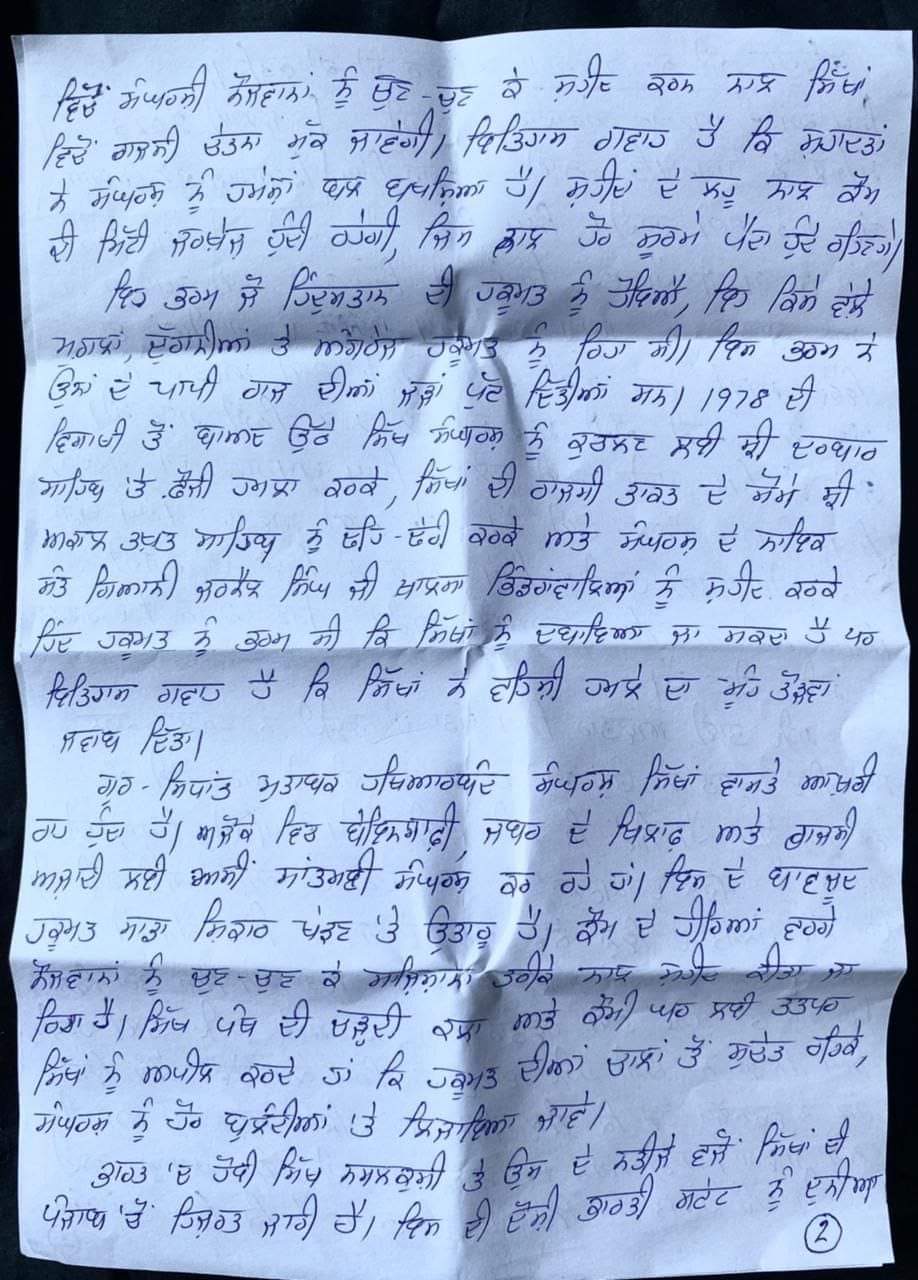 ਵਿਚੋਂ ਸੰਘਰਸ਼ੀ ਨੌਜਵਾਨਾਂ ਨੂੰ ਚੁਣ-ਚੁਣ ਕੇ ਸ਼ਹੀਦ ਕਰਨ ਨਾਲ ਸਿੱਖਾਂ
ਵਿਚੋਂ ਰਾਜਸੀ ਚੇਤਨਾ ਮੁੱਕ ਜਾਵੇਗੀ। ਇਤਿਹਾਸ ਗਵਾਹ ਹੈ ਕਿ ਸ਼ਹਾਦਤਾਂ
ਨੇ ਸੰਘਰਸ਼ ਨੂੰ ਹਮੇਸ਼ਾਂ ਬਲ ਬਖਸ਼ਿਆ ਹੈ। ਸ਼ਹੀਦਾਂ ਦੇ ਲਹੂ ਨਾਲ ਕੌਮ
ਦੀ ਮਿੱਟੀ ਜਰਖੇਜ਼ ਹੁੰਦੀ ਰਹੇਗੀ, ਜਿਸ ਨਾਲ ਹੋਰ ਸੂਰਮੇ ਪੈਦਾ ਹੁੰਦੇ ਰਹਿਣਗੇ।
ਇਹ ਭਰਮ ਜੋ ਹਿੰਦੁਸਤਾਨ ਦੀ ਹਕੂਮਤ ਨੂੰ ਹੋਇਐ, ਇਹ ਕਿਸੇ ਵੇਲੇ
ਮੁਗਲਾਂ, ਦੁੱਰਾਨੀਆਂ ਤੇ ਅੰਗਰੇਜ਼ ਹਕੂਮਤ ਨੂੰ ਰਿਹਾ ਸੀ। ਇਸ ਭਰਮ ਨੇ
ਉਨਾਂ ਦੇ ਪਾਪੀ ਰਾਜ ਦੀਆਂ ਜੜ੍ਹਾਂ ਪੁੱਟ ਦਿੱਤੀਆਂ ਸਨ। 1978 ਦੀ
ਵਿਸਾਖੀ ਤੋਂ ਬਾਅਦ ਉੱਠੇ ਸਿੱਖ ਸੰਘਰਸ਼ ਨੂੰ ਕੁਚਲਣ ਲਈ ਸ਼੍ਰੀ ਦਰਬਾਰ
ਸਾਹਿਬ 'ਤੇ ਫ਼ੌਜੀ ਹਮਲਾ ਕਰਕੇ, ਸਿੱਖਾਂ ਦੀ ਰਾਜਸੀ ਤਾਕਤ ਦੇ ਸੋਮੇ ਸ਼੍ਰੀ
ਅਕਾਲ ਤਖ਼ਤ ਸਾਹਿਬ ਨੂੰ ਢਹਿ-ਢੇਰੀ ਕਰਕੇ ਅਤੇ ਸੰਘਰਸ਼ ਦੇ ਨਾਇਕ
ਸੰਤ ਗਿਆਨੀ ਜਰਨੈਲ ਸਿੰਘ ਜੀ ਖਾਲਸਾ ਭਿੰਡਰਾਂਵਾਲਿਆਂ ਨੂੰ ਸ਼ਹੀਦ ਕਰਕੇ
ਹਿੰਦ ਹਕੂਮਤ ਨੂੰ ਭਰਮ ਸੀ ਕਿ ਸਿੱਖਾਂ ਨੂੰ ਦਬਾਇਆ ਜਾ ਸਕਦਾ ਹੈ ਪਰ
ਇਤਿਹਾਸ ਗਵਾਹ ਹੈ ਕਿ ਸਿੱਖਾਂ ਨੇ ਵਹਿਸ਼ੀ ਹਮਲੇ ਦਾ ਮੂੰਹ ਤੋੜਵਾਂ
ਜਵਾਬ ਦਿੱਤਾ।
ਗੁਰ-ਸਿਧਾਂਤ ਮੁਤਾਬਕ ਹਥਿਆਰਬੰਦ ਸੰਘਰਸ਼ ਸਿੱਖਾਂ ਵਾਸਤੇ ਆਖ਼ਰੀ
ਰਾਹ ਹੁੰਦਾ ਹੈ। ਅਜੋਕੇ ਵਿਚ ਬੇਇਨਸਾਫ਼ੀ, ਜਬਰ ਦੇ ਖਿਲਾਫ਼ ਅਤੇ ਰਾਜਸੀ
ਅਜ਼ਾਦੀ ਲਈ ਅਸੀਂ ਸ਼ਾਂਤਮਈ ਸੰਘਰਸ਼ ਕਰ ਰਹੇ ਹਾਂ। ਇਸ ਦੇ ਬਾਵਜੂਦ
ਹਕੂਮਤ ਸਾਡਾ ਸ਼ਿਕਾਰ ਖੇਡਣ 'ਤੇ ਉਤਾਰੂ ਹੈ। ਕੌਮ ਦੇ ਹੀਰਿਆਂ ਵਰਗੇ
ਨੌਜਵਾਨਾਂ ਨੂੰ ਚੁਣ-ਚੁਣ ਕੇ ਸਾਜ਼ਿਸ਼ਾਨਾ ਤਰੀਕੇ ਨਾਲ ਸ਼ਹੀਦ ਕੀਤਾ ਜਾ
ਰਿਹਾ ਹੈ। ਸਿੱਖ ਪੰਥ ਦੀ ਚੜ੍ਹਦੀ ਕਲਾ ਅਤੇ ਕੌਮੀ ਘਰ ਲਈ ਤਤਪਰ
ਸਿੱਖਾਂ ਨੂੰ ਅਪੀਲ ਕਰਦੇ ਹਾਂ ਕਿ ਹਕੂਮਤ ਦੀਆਂ ਚਾਲਾਂ ਤੋਂ ਸੁਚੇਤ ਰਹਿਕੇ,
ਸੰਘਰਸ਼ ਨੂੰ ਹੋਰ ਬੁਲੰਦੀਆਂ 'ਤੇ ਲਿਜਾਇਆ ਜਾਵੇ।
ਭਾਰਤ 'ਚ ਹੋਈ ਸਿੱਖ ਨਸਲਕੁਸ਼ੀ ਤੇ ਉਸ ਦੇ ਨਤੀਜੇ ਵਜੋਂ ਸਿੱਖਾਂ ਦੀ
ਪੰਜਾਬ 'ਚੋਂ ਹਿਜਰਤ ਜਾਰੀ ਹੈ। ਇਸ ਦੀ ਦੋਸ਼ੀ ਭਾਰਤੀ ਸਟੇਟ ਨੂੰ ਦੁਨੀਆ
2